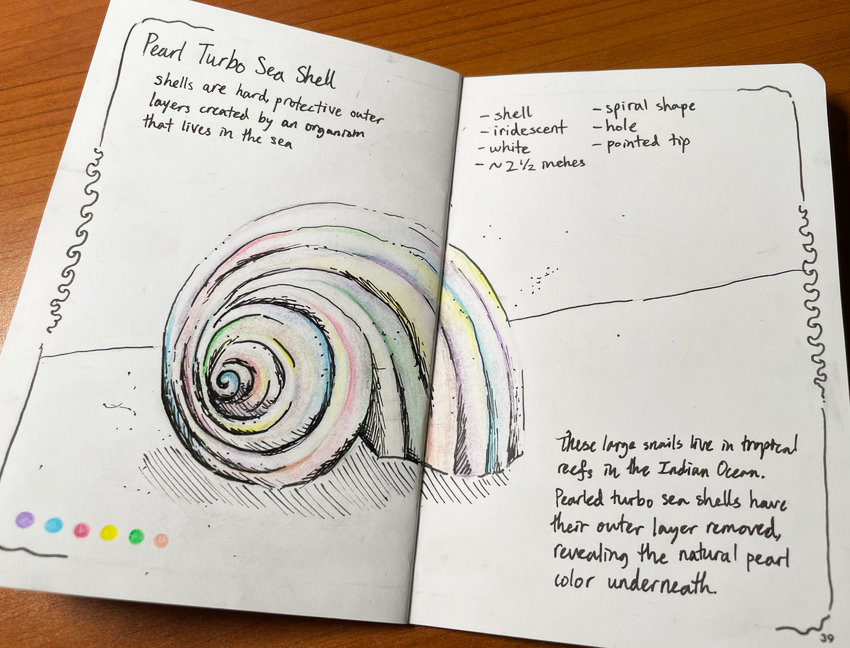 Pearl Turbo Sea Shell
shells are hard, protective outer
layers created by an organism
that lives in the sea
- shell
- iridescent
- white
- ~ 2 1/2 inches
- spiral shape
- hole
- pointed tip
These large snails live in tropical
reefs in the Indian Ocean.
Pearled turbo sea shells have
their outer layer removed,
revealing the natural pearl
color underneath.
39